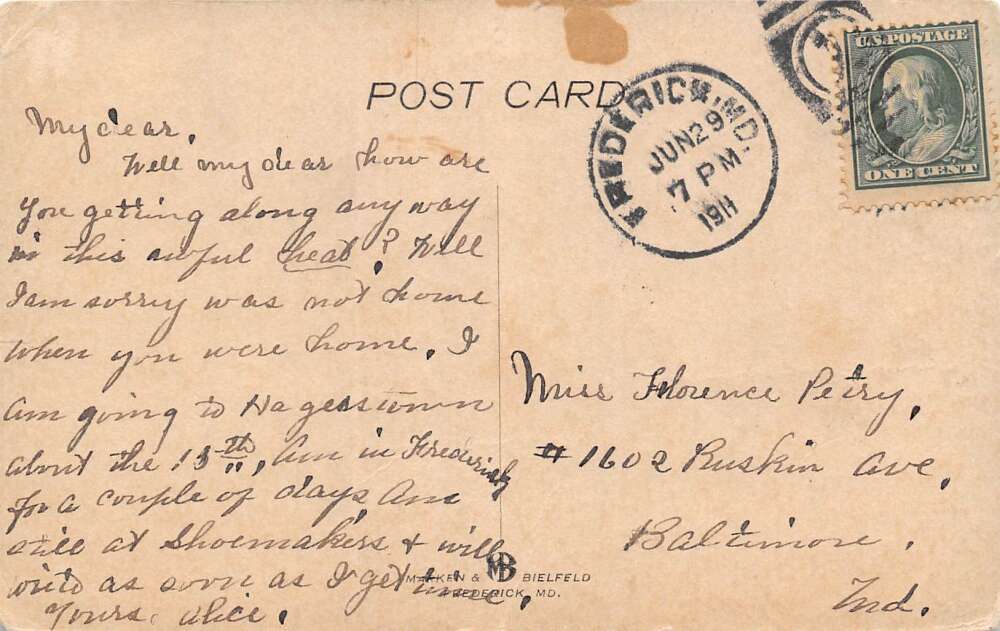 POST CARD
FREDERICK, MD.
JUN 29
7 PM
1911
U.S. POSTAGE
ONE CENT
My dear,
Well my dear how are
you getting along any way
in this awful heat? Well
I am sorry was not home
when you were home. I
am going to Hagerstown
about the 15th, Am in Frederick
for a couple of days, Am
still at Shoemakers & will
write as soon as I get time.
Yours, Alice.
Miss Florence Petry,
# 1602 Ruskin Ave,
Baltimore,
Md.
MARKEN & MB BIELFELD
FREDERICK, MD.